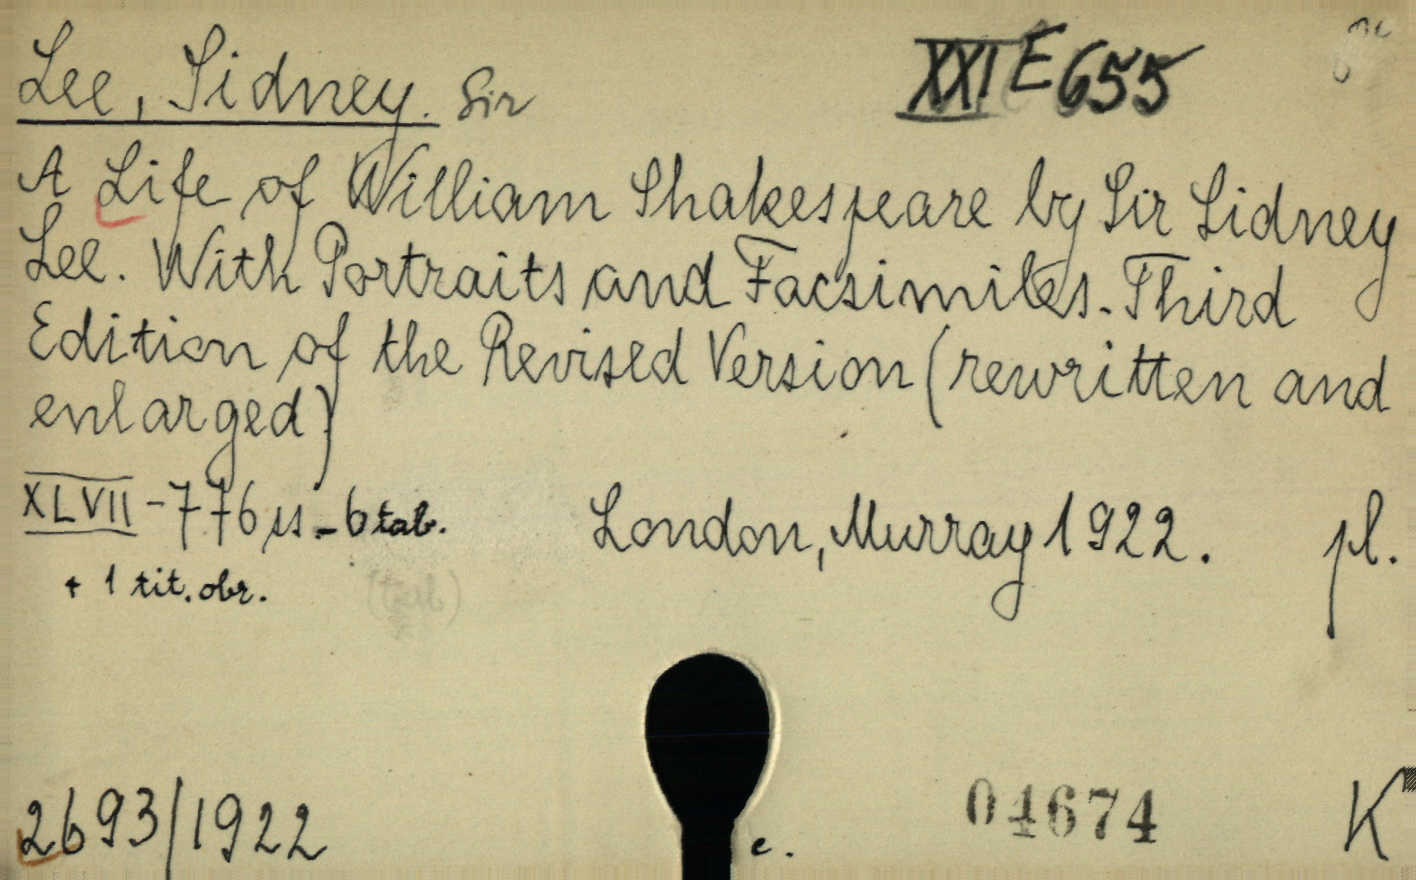 Lee, Sidney. Sir
XXI E 655
A Life of William Shakespeare by Sir Sidney
Lee. With Portraits and Facsimiles. Third
Edition of the Revised Version (rewritten and
enlarged)
XLVII - 776 ss - 6 tab.
+ 1 tit. obr.
London, Murray 1922. pl.
2693/1922
c.
04674
K